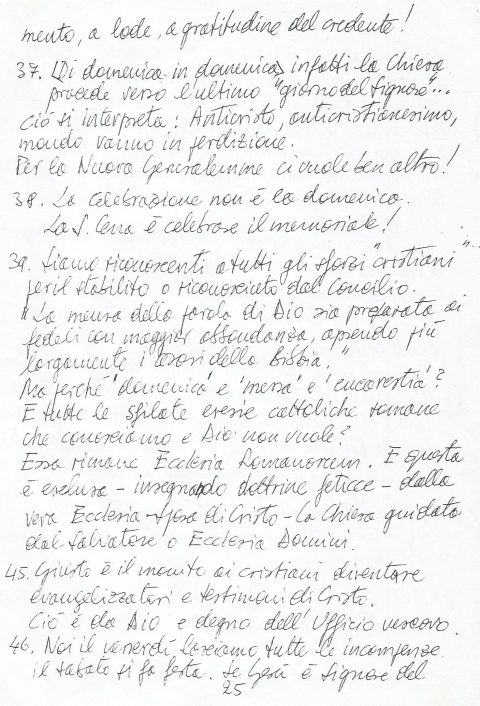 mento, a lode, a gratitudine del credente!
37. Di domenica in domenica, infatti la Chiesa
procede verso l'ultimo "giorno del Signore"...
Ciò si interpreta: Anticristo, anticristianesimo,
mondo vanno in perdizione.
Per la Nuova Gerusalemme ci vuole ben altro!
38. La celebrazione non è la domenica.
La S. Cena è celebrare il memoriale!
39. Siamo riconoscenti a tutti gli sforzi "cristiani"
per il stabilito o riconosciuto dal Concilio.
"La mensa della parola di Dio sia preparata ai
fedeli con maggior abbondanza, aprendo più
largamente i tesori della Bibbia."
Ma perché 'domenica' e 'messa' e 'eucarestia'?
E tutte le sfilate eresie cattoliche romane
che conosciamo e Dio non vuole?
Essa rimane Ecclesia Romanorum. E questa
è esclusa - insegnando dottrine feticce - dalla
vera Ecclesia - Sposa di Cristo - La Chiesa guidata
dal Salvatore o Ecclesia Domini.
45. Giusto è il monito ai cristiani diventare
evangelizzatori e testimoni di Cristo.
Ciò è da Dio e degno dell'Ufficio vescovo.
46. Noi il venerdì lasciamo tutte le incompenze
il sabato si fa festa. Se Gesù è Signore del
25